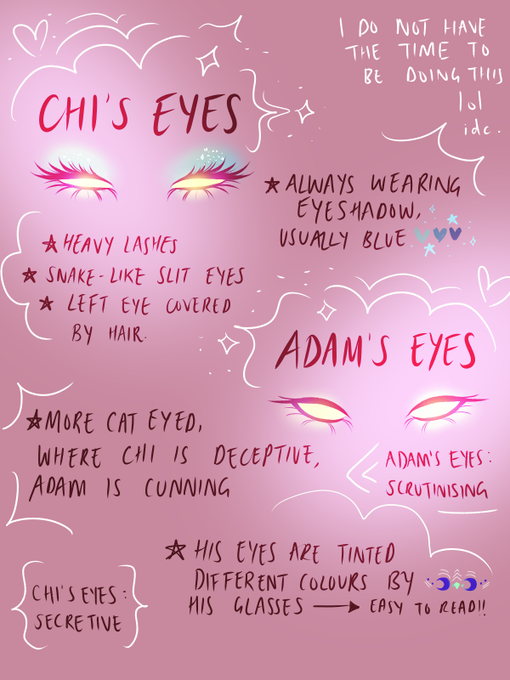 I DO NOT HAVE
THE TIME TO
BE DOING THIS
lol
idc.
CHI'S EYES
★ ALWAYS WEARING
EYESHADOW,
USUALLY BLUE
★ HEAVY LASHES
★ SNAKE-LIKE SLIT EYES
★ LEFT EYE COVERED
BY HAIR.
ADAM'S EYES
★ MORE CAT EYED,
WHERE CHI IS DECEPTIVE,
ADAM IS CUNNING
ADAM'S EYES:
SCRUTINISING
★ HIS EYES ARE TINTED
DIFFERENT COLOURS BY
HIS GLASSES → EASY TO READ!!
CHI'S EYES:
SECRETIVE